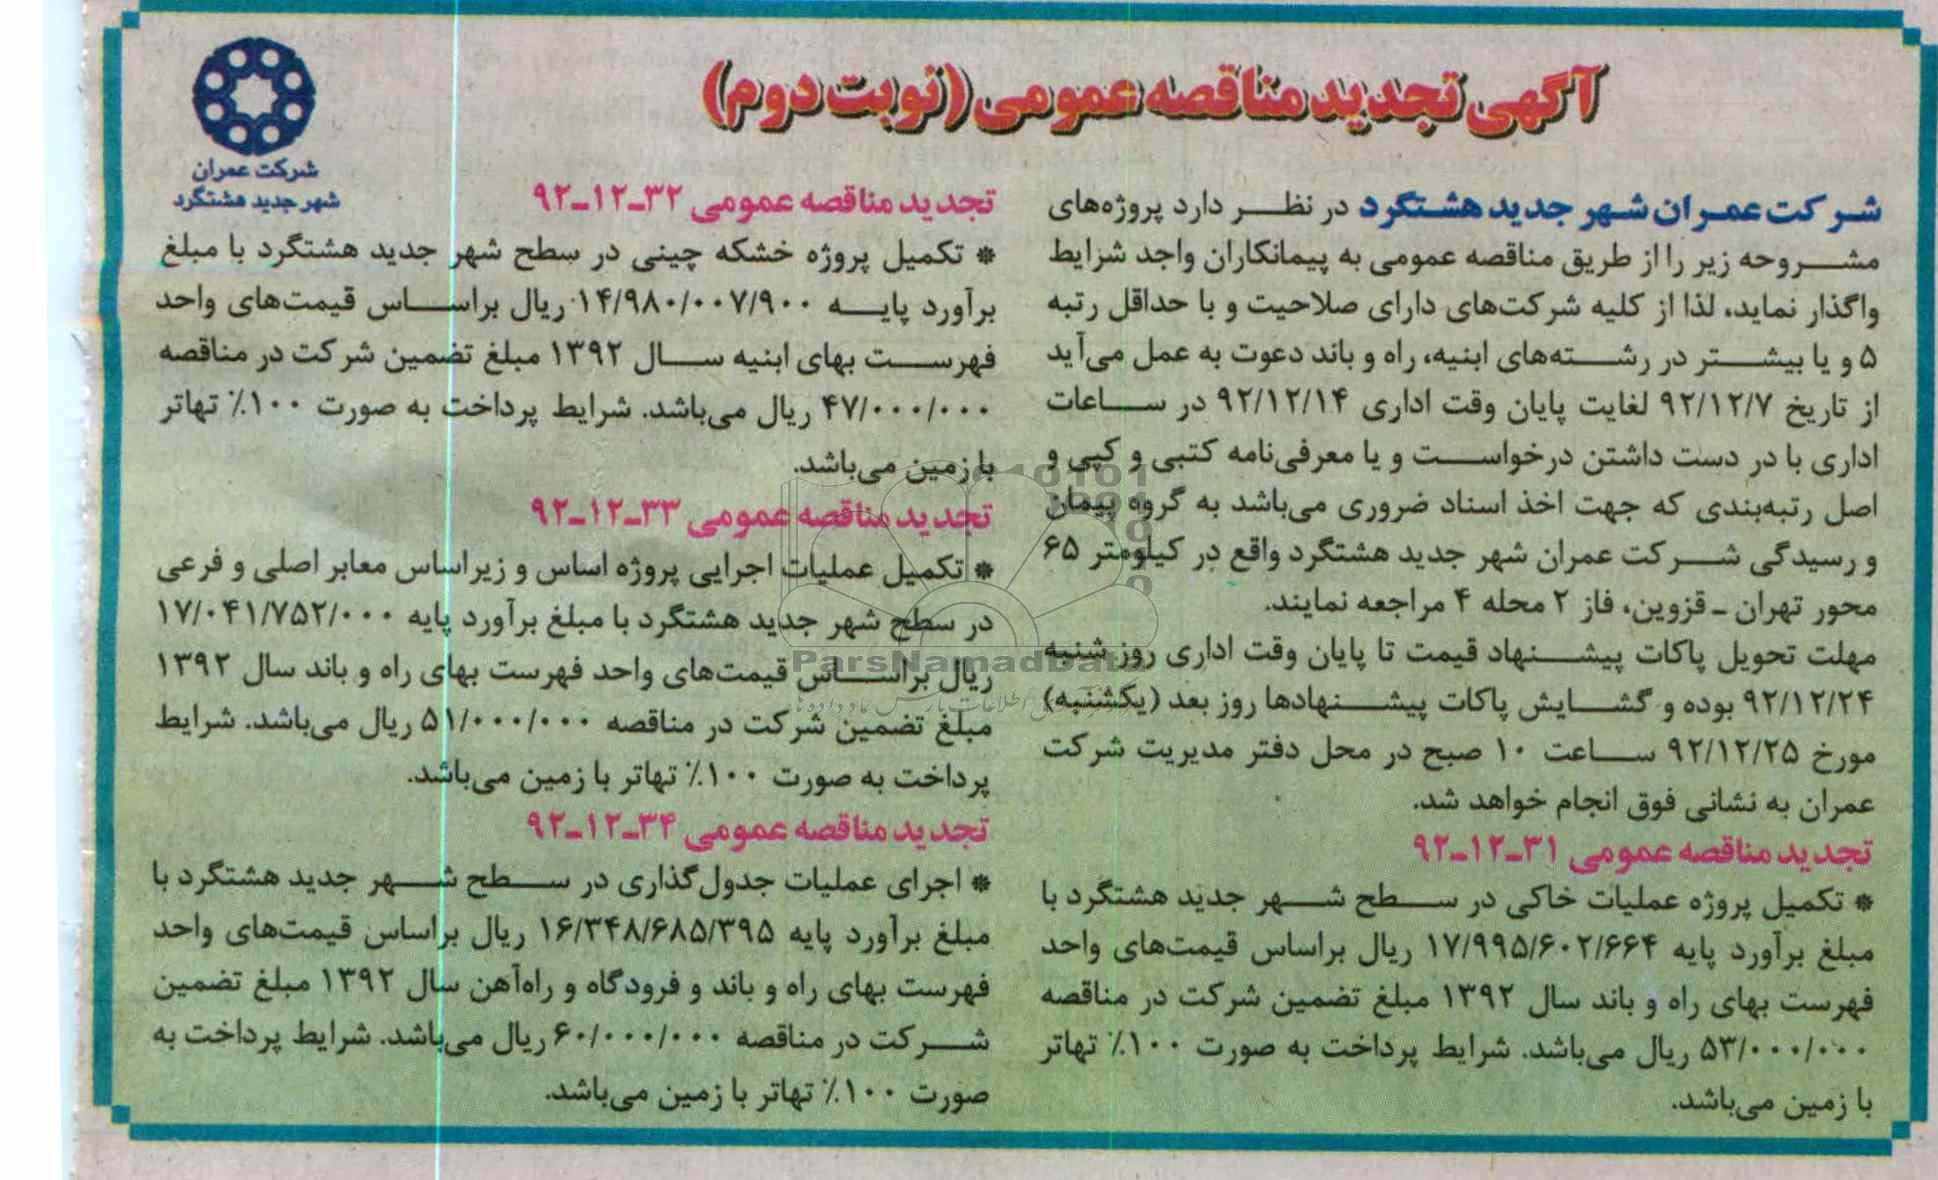 آگهی تجدید مناقصه عمومی (نوبت دوم)
شرکت عمران
شهر جدید هشتگرد
شرکت عمران شهر جدید هشتگرد در نظر دارد پروژه‌های
مشروحه زیر را از طریق مناقصه عمومی به پیمانکاران واجد شرایط
واگذار نماید، لذا از کلیه شرکت‌های دارای صلاحیت و با حداقل رتبه
۵ و یا بیشتر در رشته‌های ابنیه، راه و باند دعوت به عمل می‌آید
از تاریخ ۹۲/۱۲/۷ لغایت پایان وقت اداری ۹۲/۱۲/۱۴ در ساعات
اداری با در دست داشتن درخواست و یا معرفی‌نامه کتبی و کپی و
اصل رتبه‌بندی که جهت اخذ اسناد ضروری می‌باشد به گروه پیمان
و رسیدگی شرکت عمران شهر جدید هشتگرد واقع در کیلومتر ۶۵
محور تهران ـ قزوین، فاز ۲ محله ۴ مراجعه نمایند.
مهلت تحویل پاکات پیشنهاد قیمت تا پایان وقت اداری روز شنبه
۹۲/۱۲/۲۴ بوده و گشایش پاکات پیشنهادها روز بعد (یکشنبه)
مورخ ۹۲/۱۲/۲۵ ساعت ۱۰ صبح در محل دفتر مدیریت شرکت
عمران به نشانی فوق انجام خواهد شد.
تجدید مناقصه عمومی ۳۱ـ۱۲ـ۹۲
* تکمیل پروژه عملیات خاکی در سطح شهر جدید هشتگرد با
مبلغ برآورد پایه ۱۷/۹۹۵/۶۰۲/۶۶۴ ریال براساس قیمت‌های واحد
فهرست بهای راه و باند سال ۱۳۹۲ مبلغ تضمین شرکت در مناقصه
۵۳/۰۰۰/۰۰۰ ریال می‌باشد. شرایط پرداخت به صورت ۱۰۰٪ تهاتر
با زمین می‌باشد.
تجدید مناقصه عمومی ۳۲ـ۱۲ـ۹۲
* تکمیل پروژه خشکه چینی در سطح شهر جدید هشتگرد با مبلغ
برآورد پایه ۱۴/۹۸۰/۰۰۷/۹۰۰ ریال براساس قیمت‌های واحد
فهرست بهای ابنیه سال ۱۳۹۲ مبلغ تضمین شرکت در مناقصه
۴۷/۰۰۰/۰۰۰ ریال می‌باشد. شرایط پرداخت به صورت ۱۰۰٪ تهاتر
با زمین می‌باشد.
تجدید مناقصه عمومی ۳۳ـ۱۲ـ۹۲
* تکمیل عملیات اجرایی پروژه اساس و زیراساس معابر اصلی و فرعی
در سطح شهر جدید هشتگرد با مبلغ برآورد پایه ۱۷/۰۴۱/۷۵۲/۰۰۰
ریال براساس قیمت‌های واحد فهرست بهای راه و باند سال ۱۳۹۲
مبلغ تضمین شرکت در مناقصه ۵۱/۰۰۰/۰۰۰ ریال می‌باشد. شرایط
پرداخت به صورت ۱۰۰٪ تهاتر با زمین می‌باشد.
تجدید مناقصه عمومی ۳۴ـ۱۲ـ۹۲
* اجرای عملیات جدول‌گذاری در سطح شهر جدید هشتگرد با
مبلغ برآورد پایه ۱۶/۳۴۸/۶۸۵/۳۹۵ ریال براساس قیمت‌های واحد
فهرست بهای راه و باند و فرودگاه و راه‌آهن سال ۱۳۹۲ مبلغ تضمین
شرکت در مناقصه ۶۰/۰۰۰/۰۰۰ ریال می‌باشد. شرایط پرداخت به
صورت ۱۰۰٪ تهاتر با زمین می‌باشد.
ParsNamadData